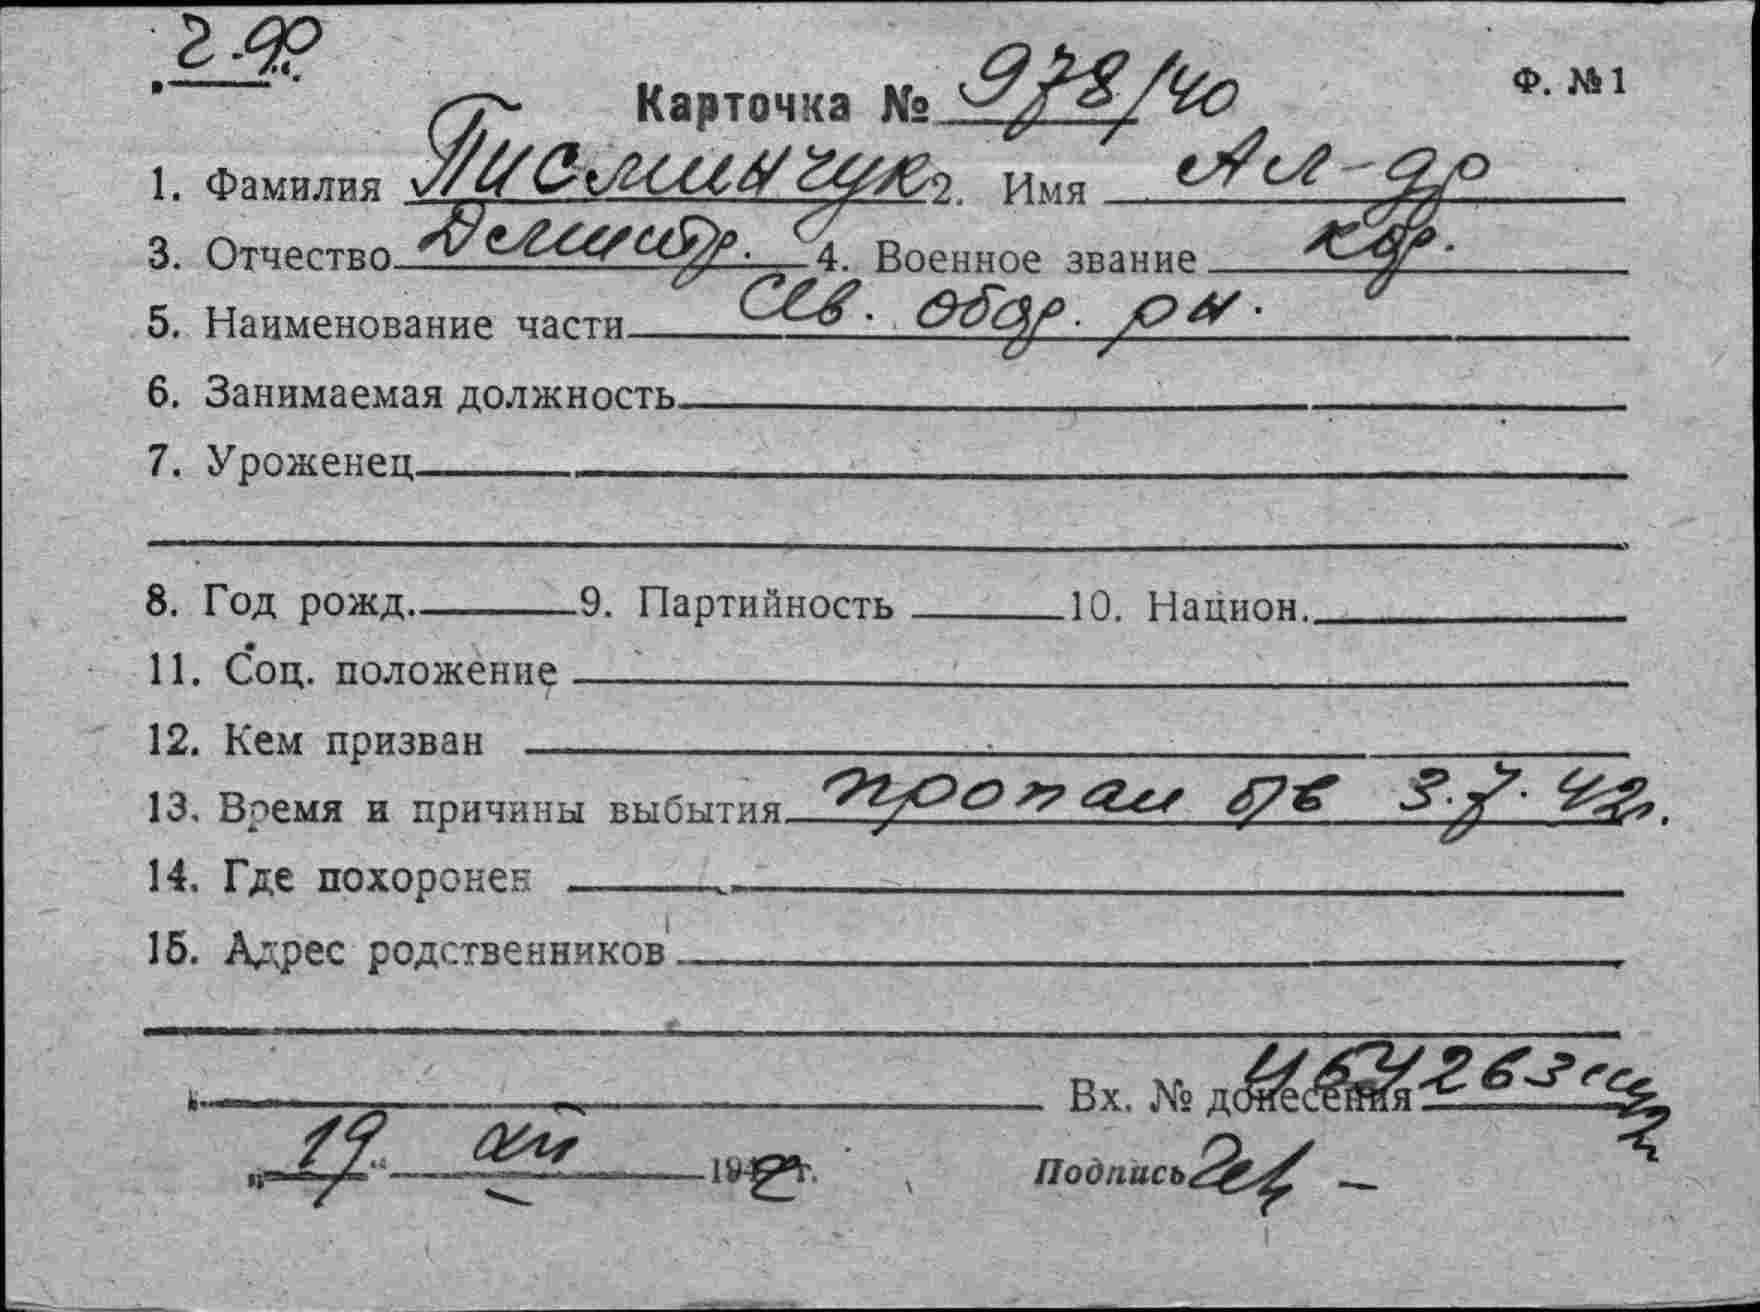 2-90
Карточка № 978/40 Ф. №1
1. Фамилия Писминчук 2. Имя Ал-др
3. Отчество Демитр. 4. Военное звание кдр.
5. Наименование части Сев. обор. рн.
6. Занимаемая должность
7. Уроженец
8. Год рожд. 9. Партийность 10. Национ.
11. Соц. положение
12. Кем призван
13. Время и причины выбытия пропал бв 3.7.42г.
14. Где похоронен
15. Адрес родственников
Вх. № донесения
„19“ 194 г. Подпись